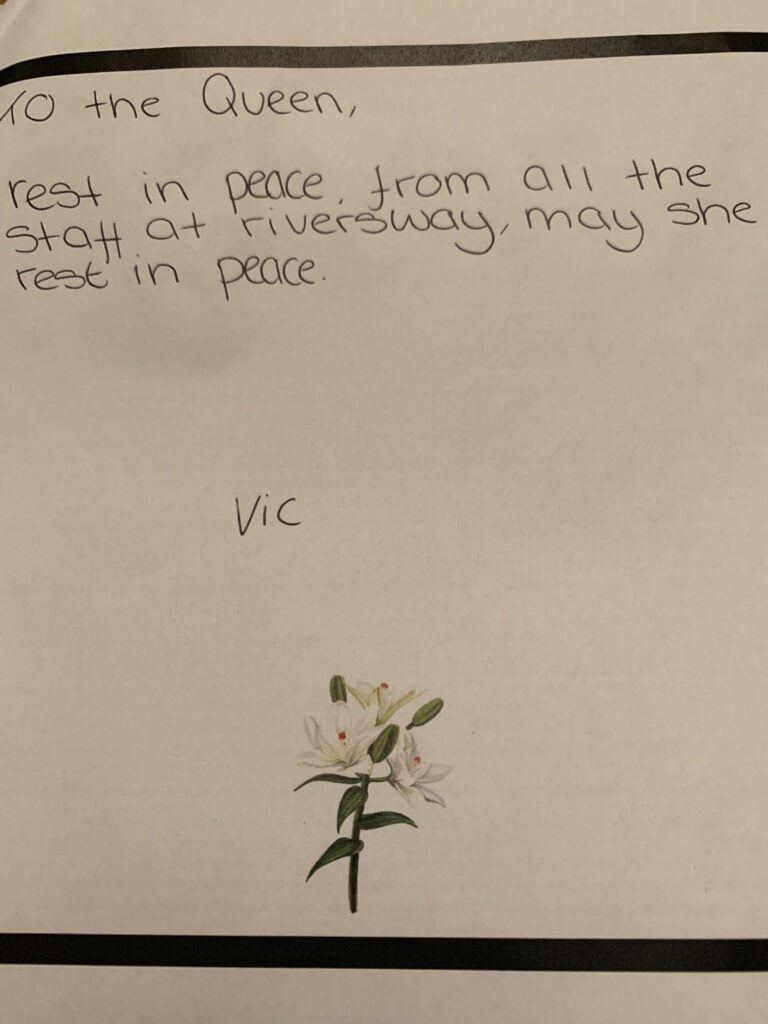 To the Queen,
rest in peace, from all the
staff at riversway, may she
rest in peace.
Vic